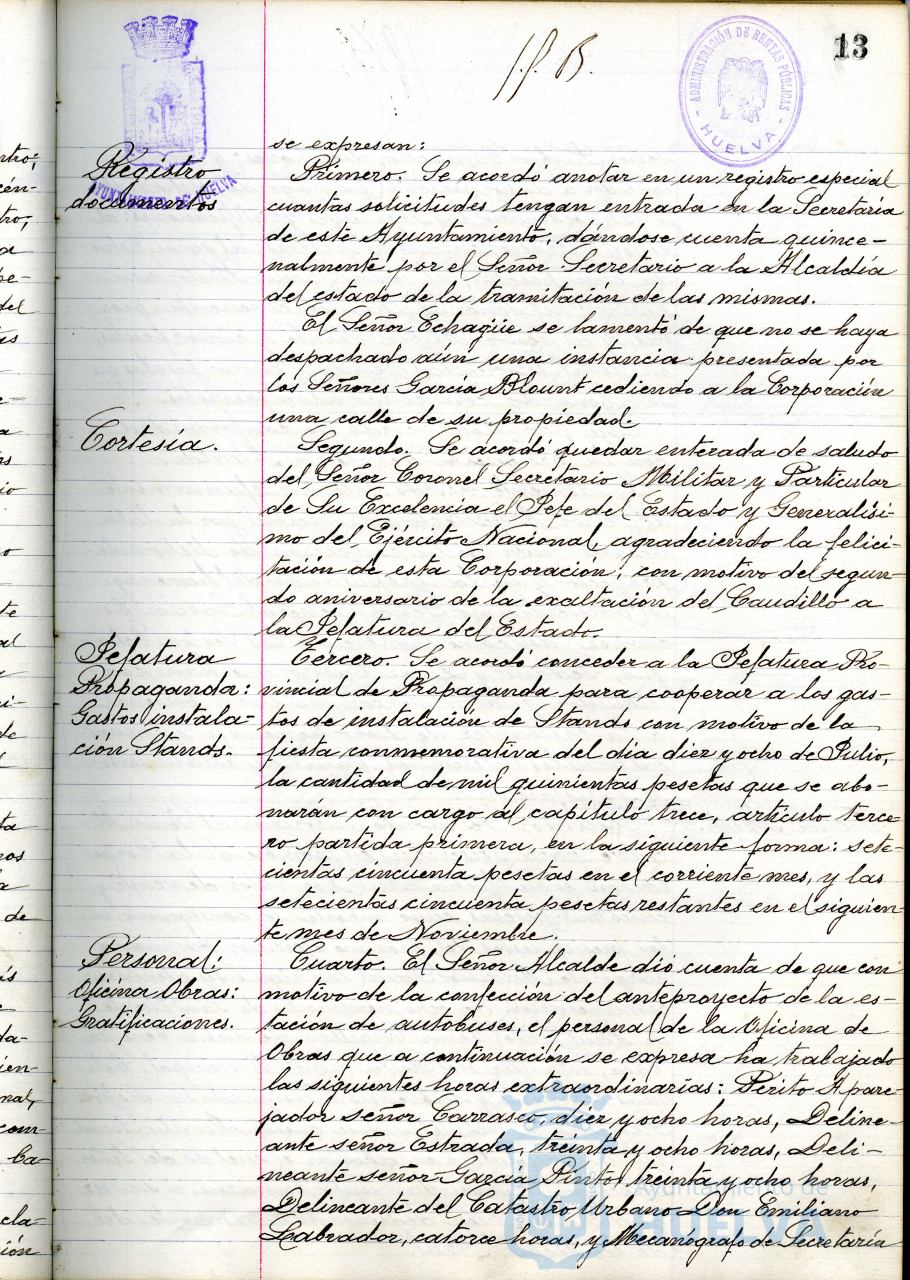 13
ADMINISTRACIÓN DE RENTAS PÚBLICAS
HUELVA
AYUNTAMIENTO DE HUELVA
se expresan:
Registro
documentos
Primero. Se acordó anotar en un registro especial
cuantas solicitudes tengan entrada en la Secretaría
de este Ayuntamiento, dándose cuenta quince-
nalmente por el Señor Secretario a la Alcaldía
del estado de la tramitación de las mismas.
El Señor Echagüe se lamentó de que no se haya
despachado aún una instancia presentada por
los Señores García Blount cediendo a la Corporación
una calle de su propiedad.
Cortesía.
Segundo. Se acordó quedar enterada de saludo
del Señor Coronel Secretario Militar y Particular
de Su Excelencia el Jefe del Estado y Generalísi-
mo del Ejército Nacional, agradeciendo la felici-
tación de esta Corporación, con motivo del segun-
do aniversario de la exaltación del Caudillo a
la Jefatura del Estado.
Jefatura
Propaganda:
Gastos instala-
ción Stands.
Tercero. Se acordó conceder a la Jefatura Pro-
vincial de Propaganda para cooperar a los gas-
tos de instalación de Stands con motivo de la
fiesta conmemorativa del día diez y ocho de Julio,
la cantidad de mil quinientas pesetas que se abo-
narán con cargo al capítulo trece, artículo terce-
ro partida primera, en la siguiente forma: sete-
cientas cincuenta pesetas en el corriente mes, y las
setecientas cincuenta pesetas restantes en el siguien-
te mes de Noviembre.
Personal:
Oficina Obras:
Gratificaciones.
Cuarto. El Señor Alcalde dió cuenta de que con
motivo de la confección del anteproyecto de la es-
tación de autobuses, el personal de la Oficina de
Obras que a continuación se expresa ha trabajado
las siguientes horas extraordinarias: Perito Apare-
jador señor Carrasco, diez y ocho horas, Deline-
ante señor Estrada, treinta y ocho horas, Deli-
neante señor García Pinto, treinta y ocho horas,
Delineante del Catastro Urbano Don Emiliano
Labrador, catorce horas, y Mecanógrafo de Secretaría
Ayuntamiento de
HUELVA